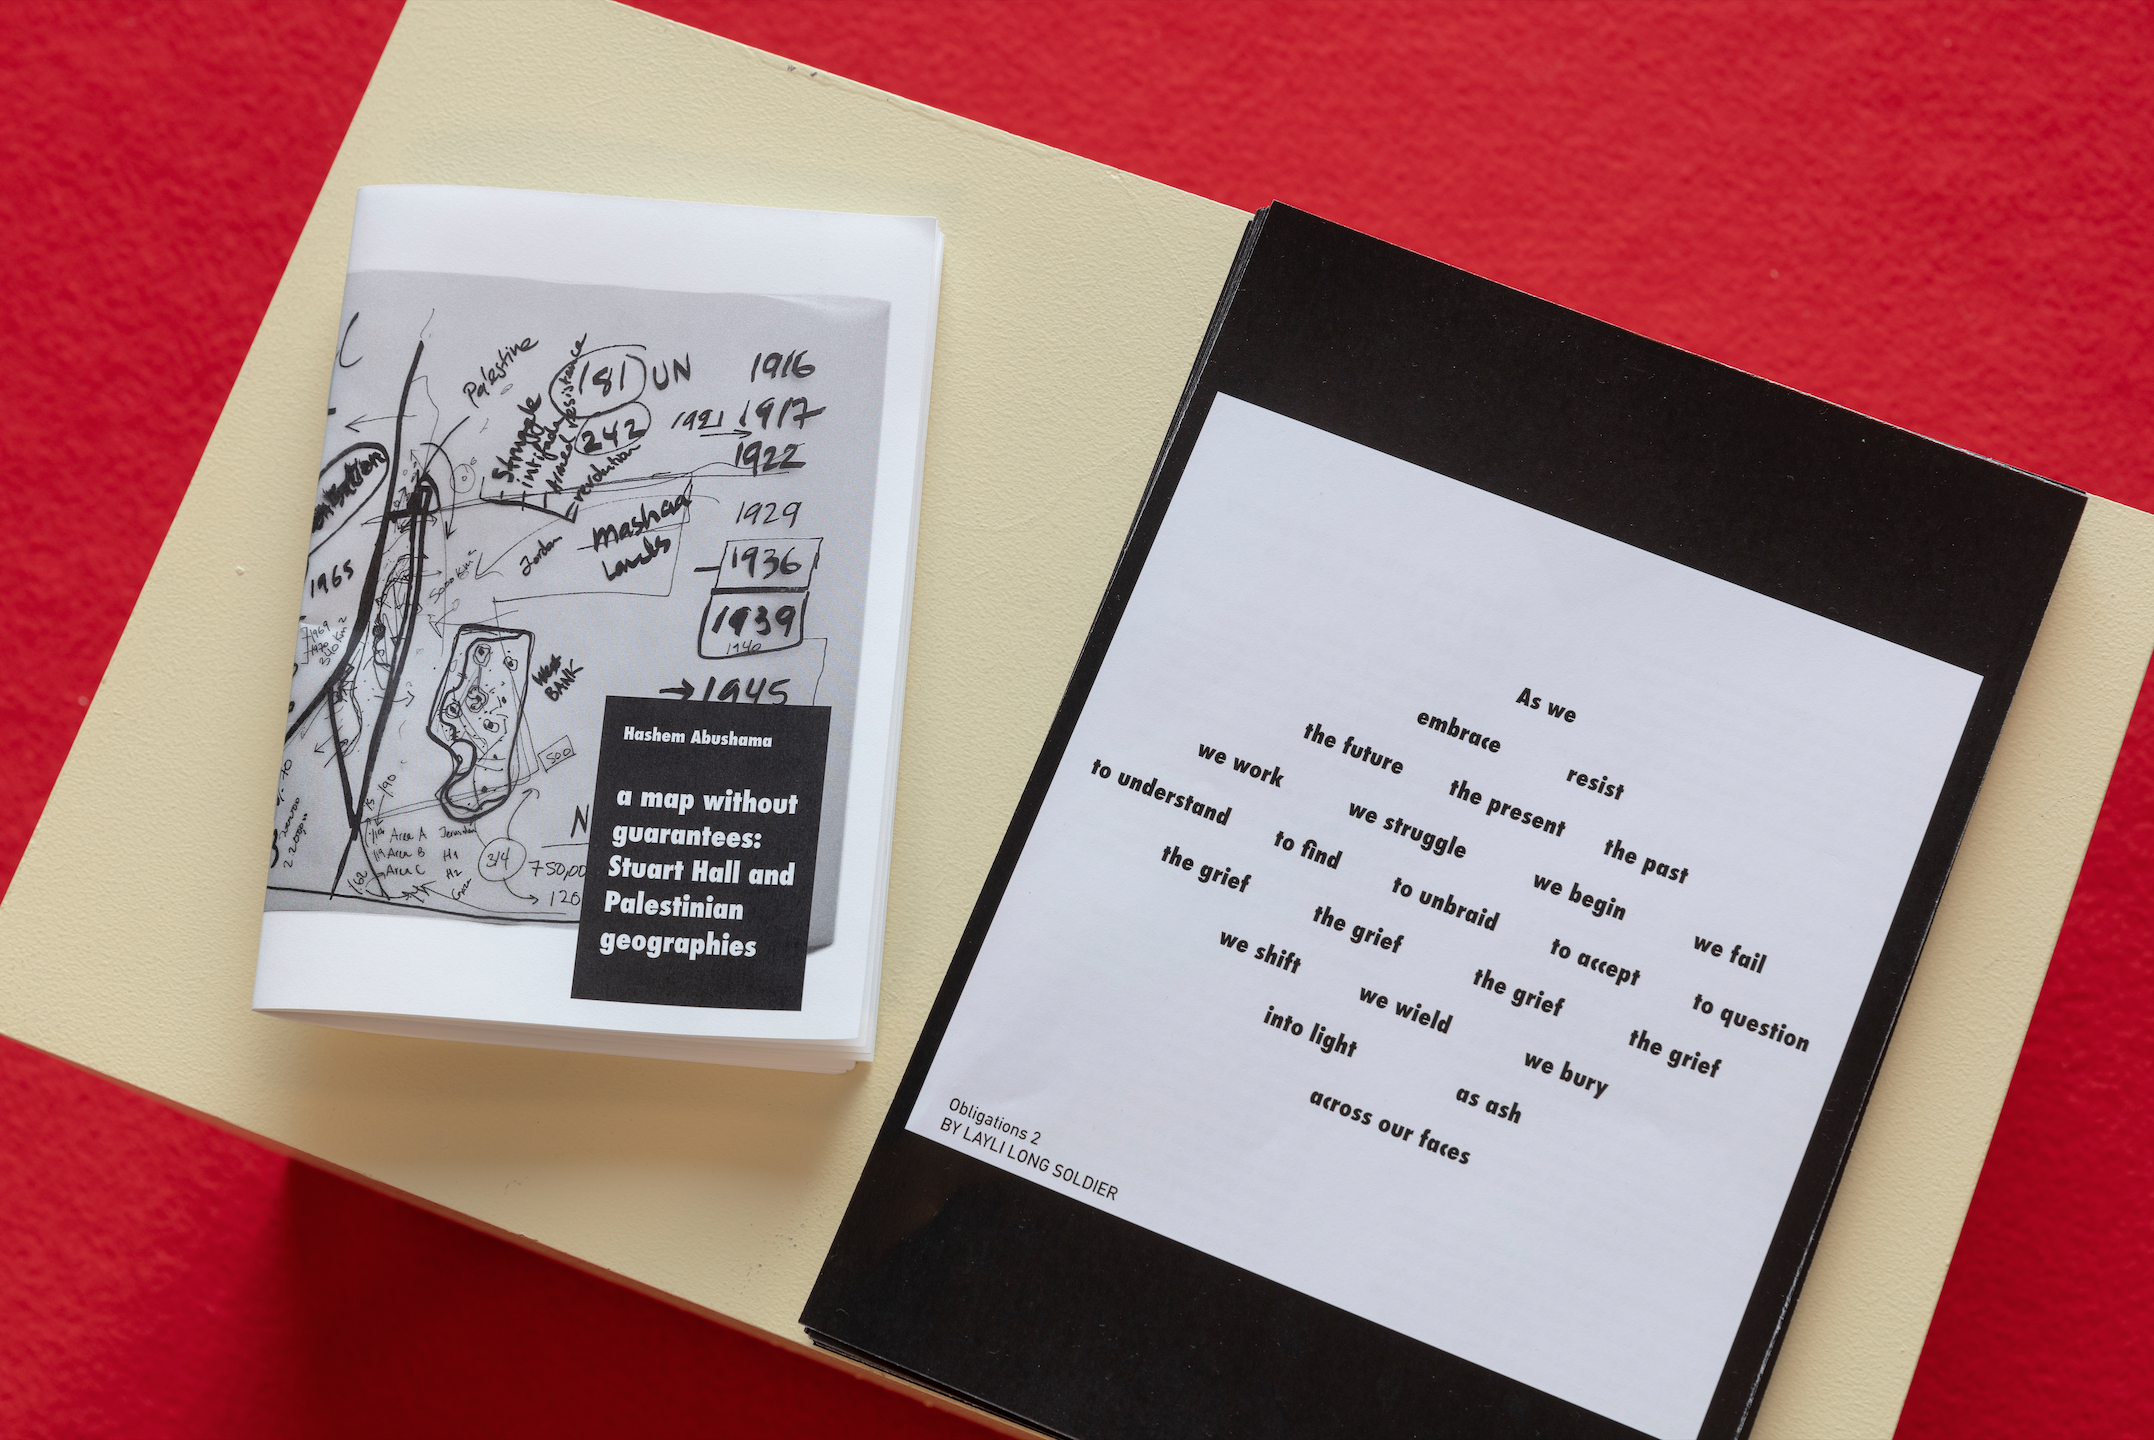 Palestine
Struggle
intifada
Armed resistance
revolution
181 UN
242
1916
1921 → 1917
1922
1929
1936
1939
1940
→ 1945
Mashaa
Lands
Jordan
1965
West
BANK
500
Area A
Area B H1
Area C H2
314
N
Hashem Abushama
a map without
guarantees:
Stuart Hall and
Palestinian
geographies
As we
embrace resist
the future the present the past
we work we struggle we begin we fail
to understand to find to unbraid to accept to question
the grief the grief the grief the grief
we shift we wield we bury
into light as ash
across our faces
Obligations 2
BY LAYLI LONG SOLDIER